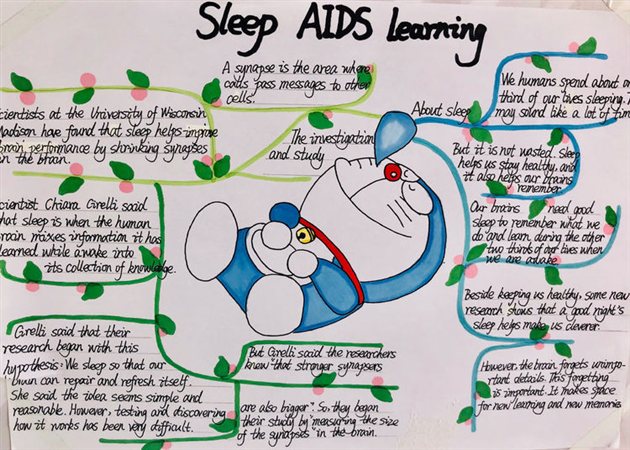 Sleep AIDS learning
A synapse is the area where
cells pass messages to other
cells.
Scientists at the University of Wisconsin
Madison have found that sleep helps improve
brain performance by shrinking synapses
in the brain.
The investigation
and study
Scientist Chiara Cirelli said
that sleep is when the human
brain mixes information it has
learned while awake into
its collection of knowledge.
Cirelli said that their
research began with this
hypothesis: We sleep so that our
brain can repair and refresh itself.
She said the idea seems simple and
reasonable. However, testing and discovering
how it works has been very difficult.
But Cirelli said the researchers
knew "that stronger synapsers
are also bigger". So, they began
their study by "measuring the size
of the synapses" in the brain.
About sleep
We humans spend about on
third of our lives sleeping. I
may sound like a lot of tim
But it is not wasted. Sleep
helps us stay healthy, and
it also helps our brains
remember
Our brains need good
sleep to remember what we
do and learn during the other
two thirds of our lives when
we are awake
Beside keeping us healthy, some new
research shows that a good night's
sleep helps make us cleverer.
However, the brain forgets unimpor-
rtant details. This forgetting
is important. It makes space
for new learning and new memories